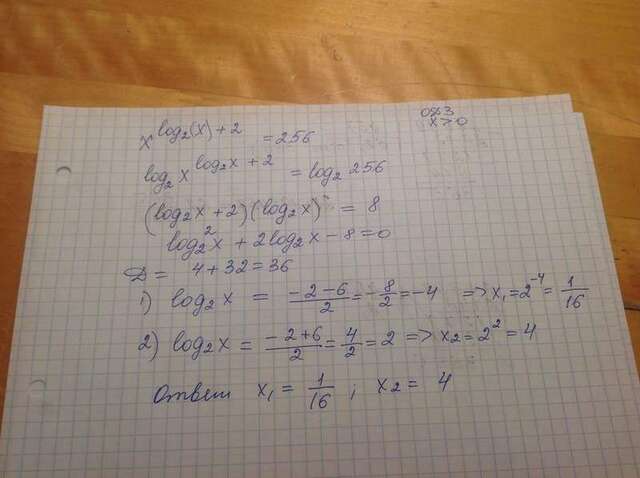 ОДЗ
x > 0
x^(log₂(x) + 2) = 256
log₂ x^(log₂x + 2) = log₂ 256
(log₂x + 2)(log₂x) = 8
log₂²x + 2log₂x - 8 = 0
D = 4 + 32 = 36
1) log₂x = (-2-6)/2 = -8/2 = -4 => x₁ = 2⁻⁴ = 1/16
2) log₂x = (-2+6)/2 = 4/2 = 2 => x₂ = 2² = 4
Ответ x₁ = 1/16 ; x₂ = 4